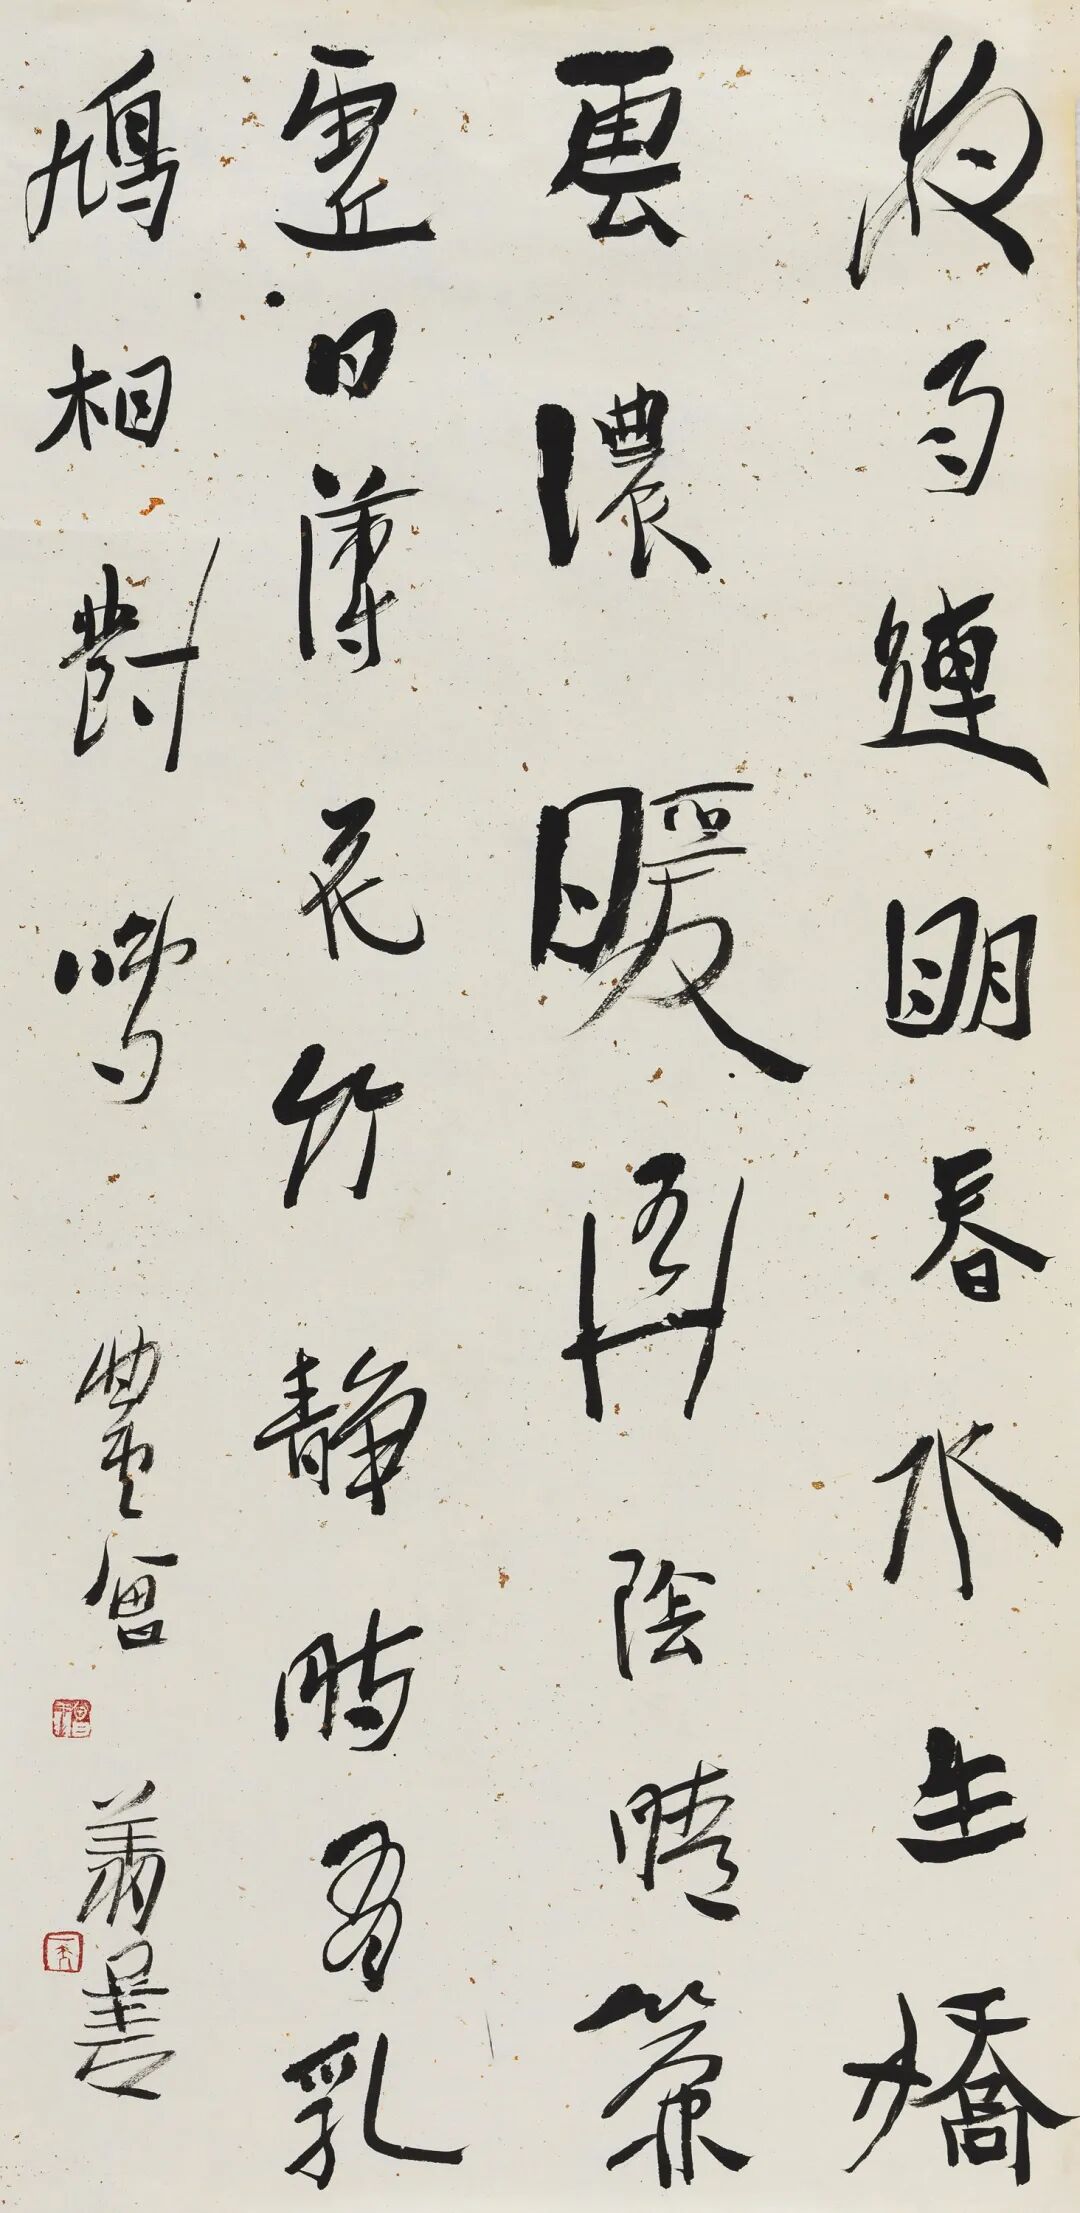 夜雨連明春水生嬌
雲濃暖弄陰晴簾
虛日薄花竹靜時有乳
鳩相對鳴